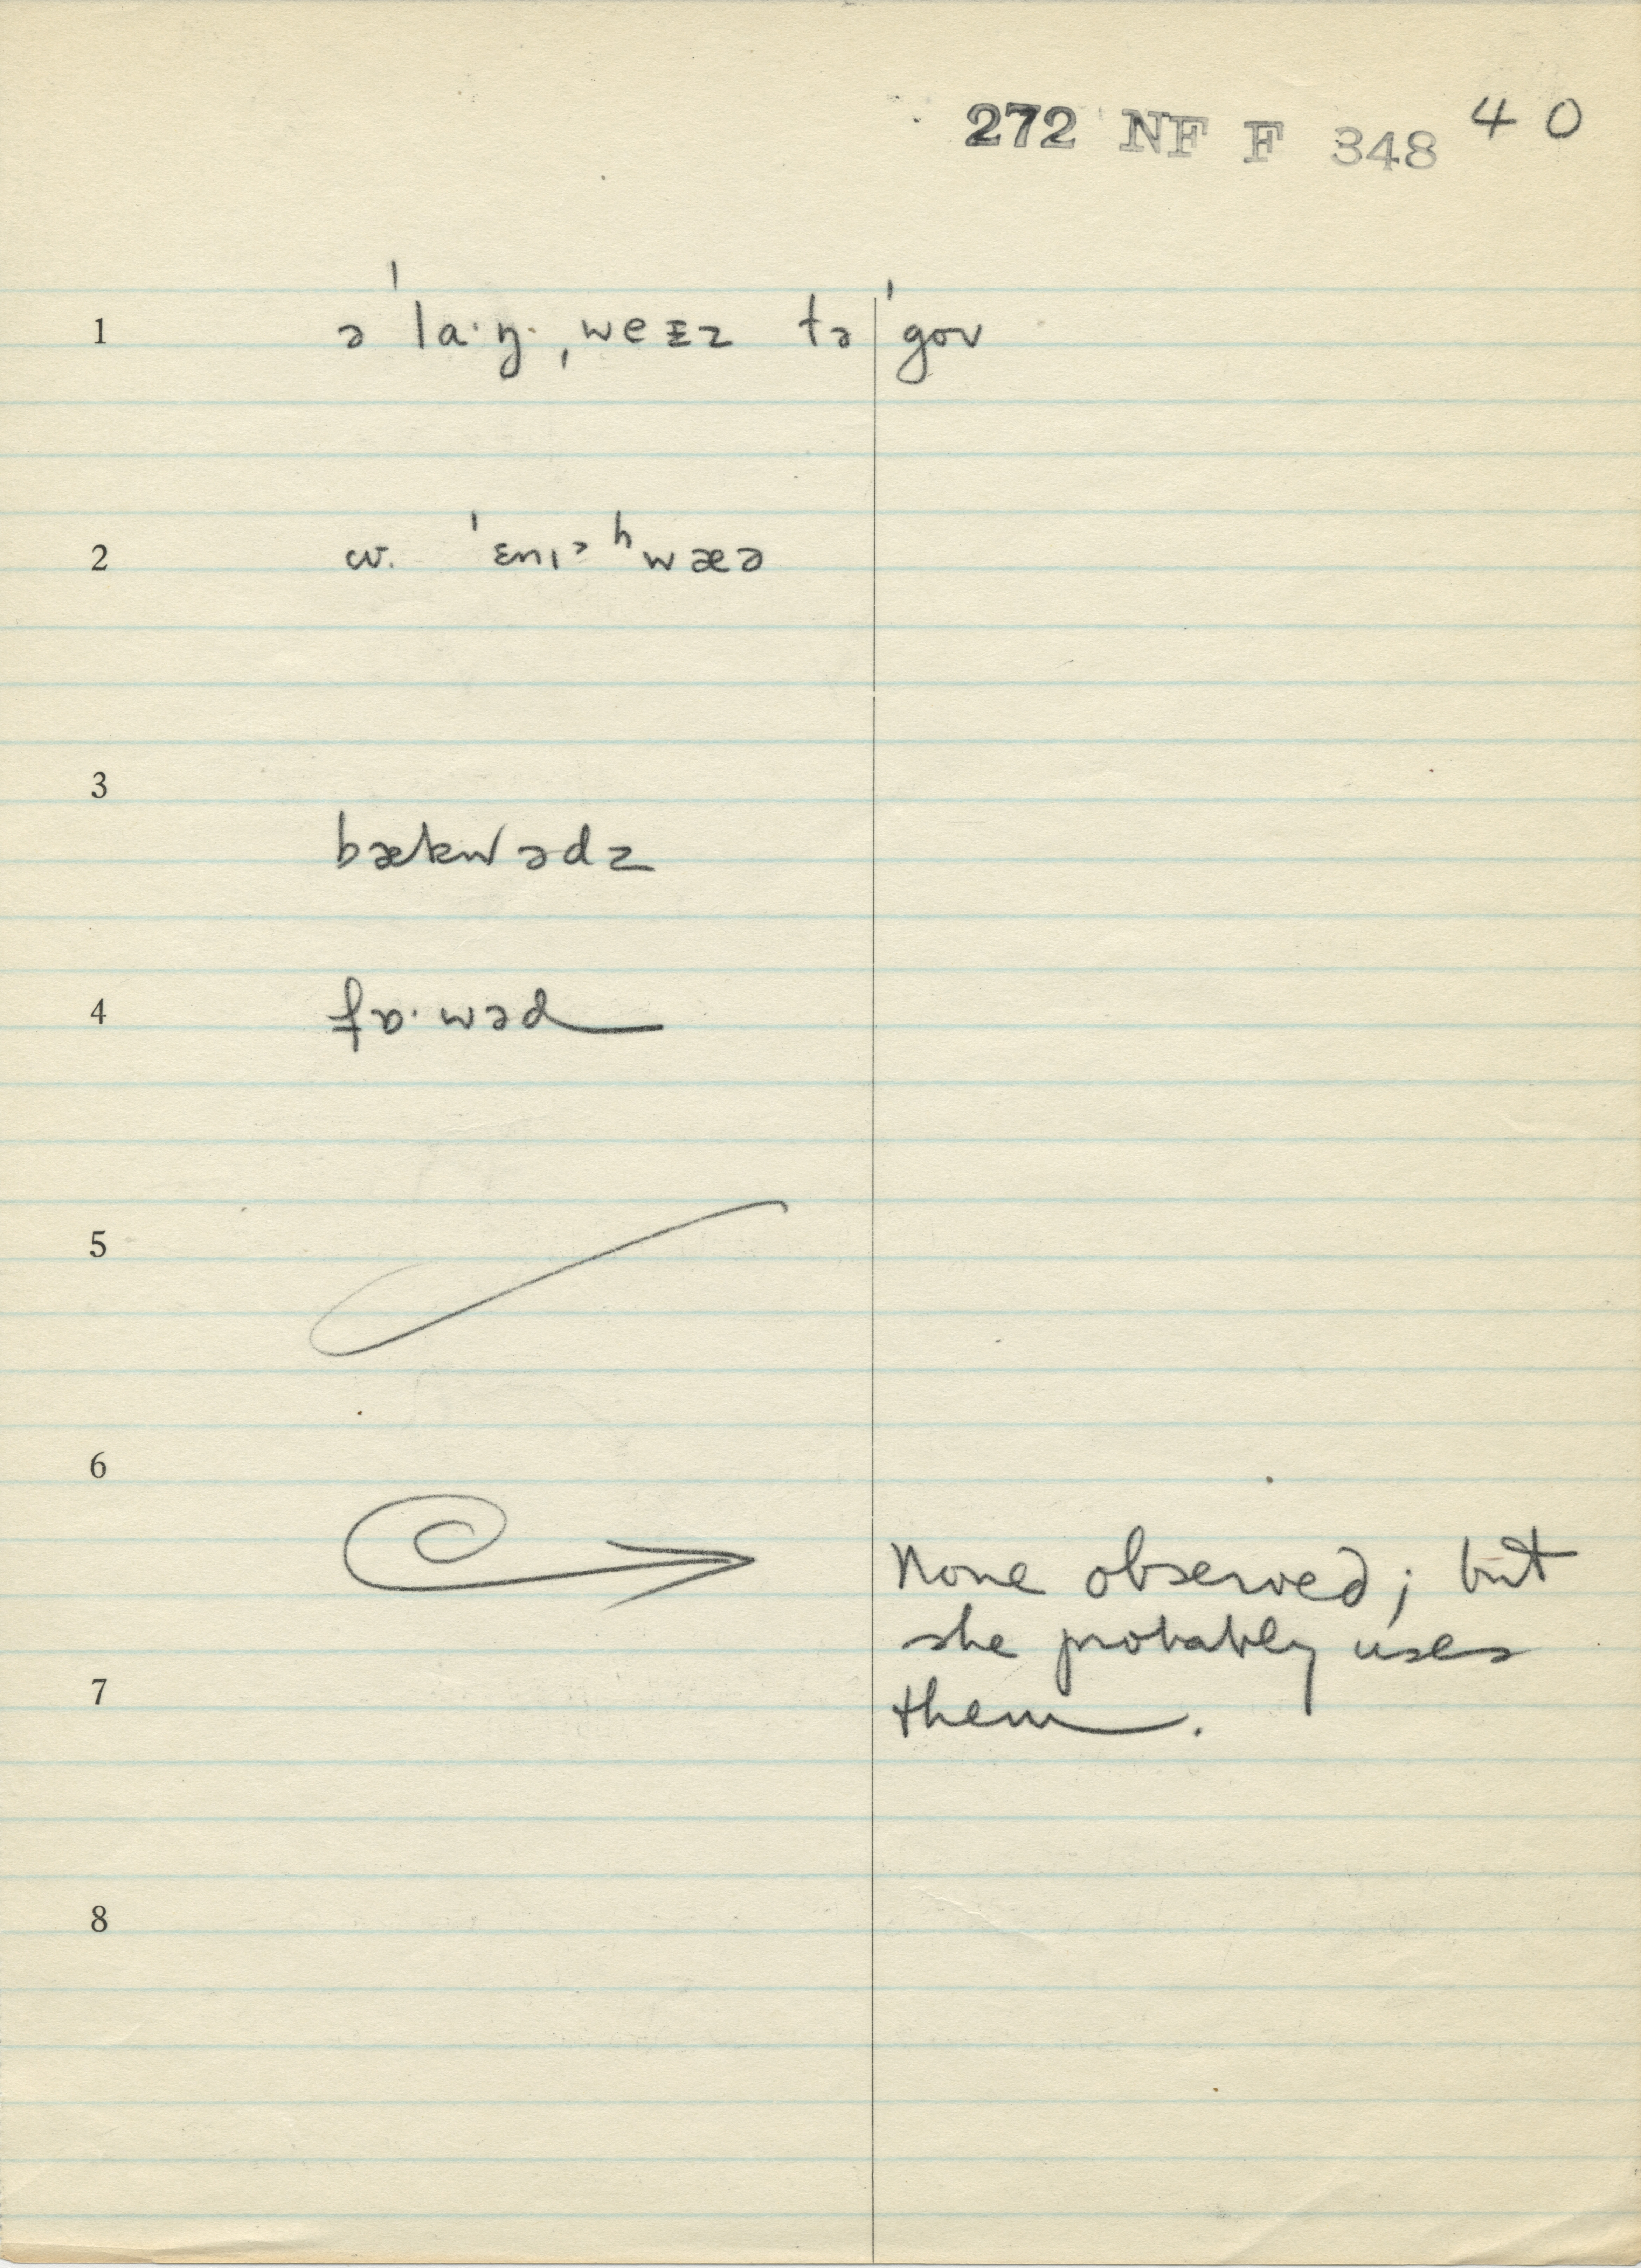 272 NF F 348 40
1 ə ˈlaˑŋˑ ˌweɪz tə ˈgoʊ
2 w. ˈɛnɪᵊ ʰwæə
3
bækwədz
4 fɒˑwəd
5
6
None observed; but
she probably uses
7
them.
8